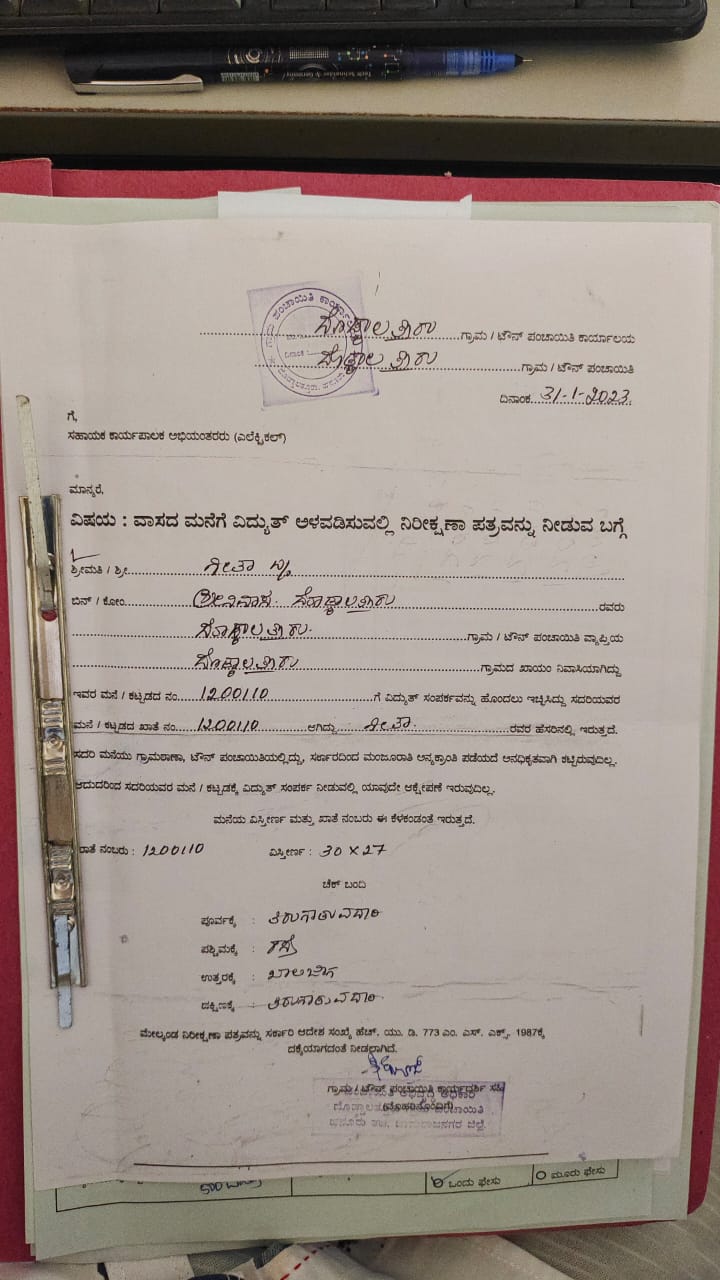 ದೊಡ್ಡಾಲತ್ತೂರು ಗ್ರಾಮ / ಟೌನ್ ಪಂಚಾಯಿತಿ ಕಾರ್ಯಾಲಯ
ದೊಡ್ಡಾಲತ್ತೂರು ಗ್ರಾಮ / ಟೌನ್ ಪಂಚಾಯಿತಿ
ದಿನಾಂಕ 31-1-2023
ಗೆ,
ಸಹಾಯಕ ಕಾರ್ಯಪಾಲಕ ಅಭಿಯಂತರರು (ಎಲೆಕ್ಟಿಕಲ್)
ಮಾನ್ಯರೆ,
ವಿಷಯ : ವಾಸದ ಮನೆಗೆ ವಿದ್ಯುತ್ ಅಳವಡಿಸುವಲ್ಲಿ ನಿರೀಕ್ಷಣಾ ಪತ್ರವನ್ನು ನೀಡುವ ಬಗ್ಗೆ
ಶ್ರೀಮತಿ / ಶ್ರೀ ಗೀತಾ
ಬಿನ್ / ಕೋಂ ಶ್ರೀನಿವಾಸ. ದೊಡ್ಡಾಲತ್ತೂರು ರವರು
ದೊಡ್ಡಾಲತ್ತೂರು. ಗ್ರಾಮ / ಟೌನ್ ಪಂಚಾಯಿತಿ ವ್ಯಾಪ್ತಿಯ
ದೊಡ್ಡಾಲತ್ತೂರು ಗ್ರಾಮದ ಖಾಯಂ ನಿವಾಸಿಯಾಗಿದ್ದು
ಇವರ ಮನೆ / ಕಟ್ಟಡದ ನಂ. 1200110 ಗೆ ವಿದ್ಯುತ್ ಸಂಪರ್ಕವನ್ನು ಹೊಂದಲು ಇಚ್ಛಿಸಿದ್ದು ಸದರಿಯವರ
ಮನೆ / ಕಟ್ಟಡದ ಖಾತೆ ನಂ. 1200110 ಆಗಿದ್ದು ಗೀತಾ. ರವರ ಹೆಸರಿನಲ್ಲಿ ಇರುತ್ತದೆ.
ಸದರಿ ಮನೆಯು ಗ್ರಾಮಠಾಣಾ, ಟೌನ್ ಪಂಚಾಯಿತಿಯಲ್ಲಿದ್ದು, ಸರ್ಕಾರದಿಂದ ಮಂಜೂರಾತಿ ಅನ್ಯಕ್ರಾಂತಿ ಪಡೆಯದೆ ಅನಧಿಕೃತವಾಗಿ ಕಟ್ಟಿರುವುದಿಲ್ಲ.
ಆದುದರಿಂದ ಸದರಿಯವರ ಮನೆ / ಕಟ್ಟಡಕ್ಕೆ ವಿದ್ಯುತ್ ಸಂಪರ್ಕ ನೀಡುವಲ್ಲಿ ಯಾವುದೇ ಆಕ್ಷೇಪಣೆ ಇರುವುದಿಲ್ಲ.
ಮನೆಯ ವಿಸ್ತೀರ್ಣ ಮತ್ತು ಖಾತೆ ನಂಬರು ಈ ಕೆಳಕಂಡಂತೆ ಇರುತ್ತದೆ.
ಖಾತೆ ನಂಬರು : 1200110 ವಿಸ್ತೀರ್ಣ : 30 X 27
ಚೆಕ್ ಬಂದಿ
ಪೂರ್ವಕ್ಕೆ :
ಪಶ್ಚಿಮಕ್ಕೆ : ರಸ್ತೆ
ಉತ್ತರಕ್ಕೆ : ಖಾಲಿ ಜಾಗ
ದಕ್ಷಿಣಕ್ಕೆ :
ಮೇಲ್ಕಂಡ ನಿರೀಕ್ಷಣಾ ಪತ್ರವನ್ನು ಸರ್ಕಾರಿ ಆದೇಶ ಸಂಖ್ಯೆ ಹೆಚ್. ಯು. ಡಿ. 773 ಎಂ. ಎಸ್. ಎಕ್ಸ್. 1987ಕ್ಕೆ
ದಕ್ಕೆಯಾಗದಂತೆ ನೀಡಲಾಗಿದೆ.
ಗ್ರಾಮ / ಟೌನ್ ಪಂಚಾಯಿತಿ ಕಾರ್ಯದರ್ಶಿ ಸಹಿ
(ಮೊಹರಿನೊಂದಿಗೆ)
ಒಂದು ಫೇಸು ಮೂರು ಫೇಸು